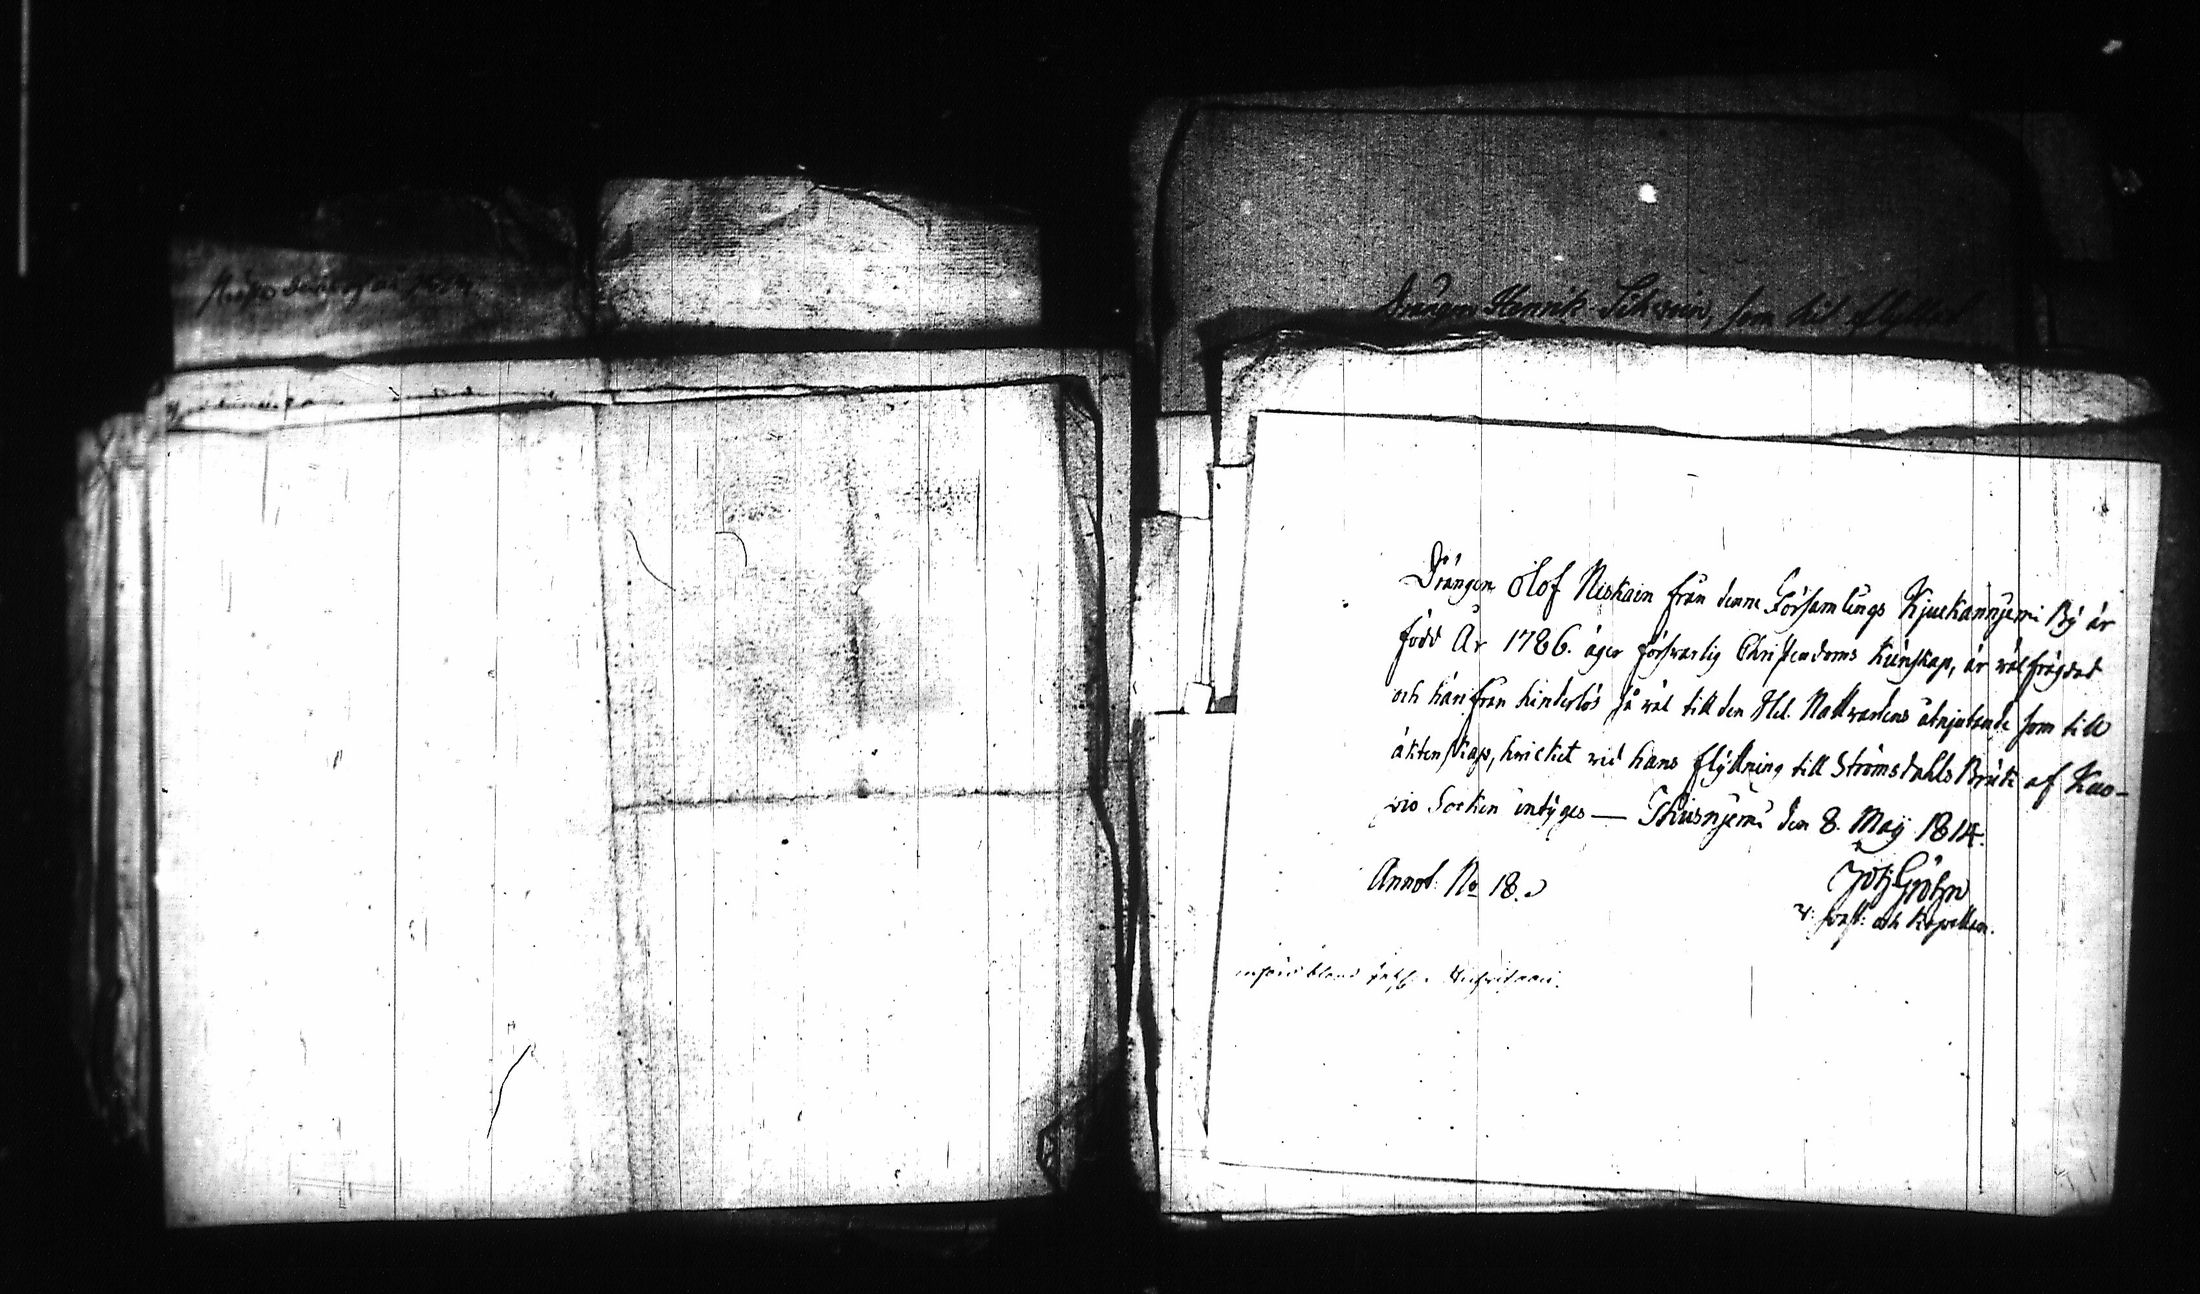 Drängen Henrik Sikvoin, som hit flyttat
Drängen Olof Niskain från denne Församlings Kjuckannjemi By är
född År 1786. äger försvarlig Christendoms Kunskap, är välfrägdad
och härifrån hinderlös så väl till den Hel. Nattvardens åtnjutande som till
äktenskap, hvilket vid hans flyttning till Strömsdahls Bruk af Kuo-
vio Socken intyges — Idensnjemi den 8. Maij 1814.
Joh Gröhn
Annot: No 18.
v: past: och Kapellan.
införd bland